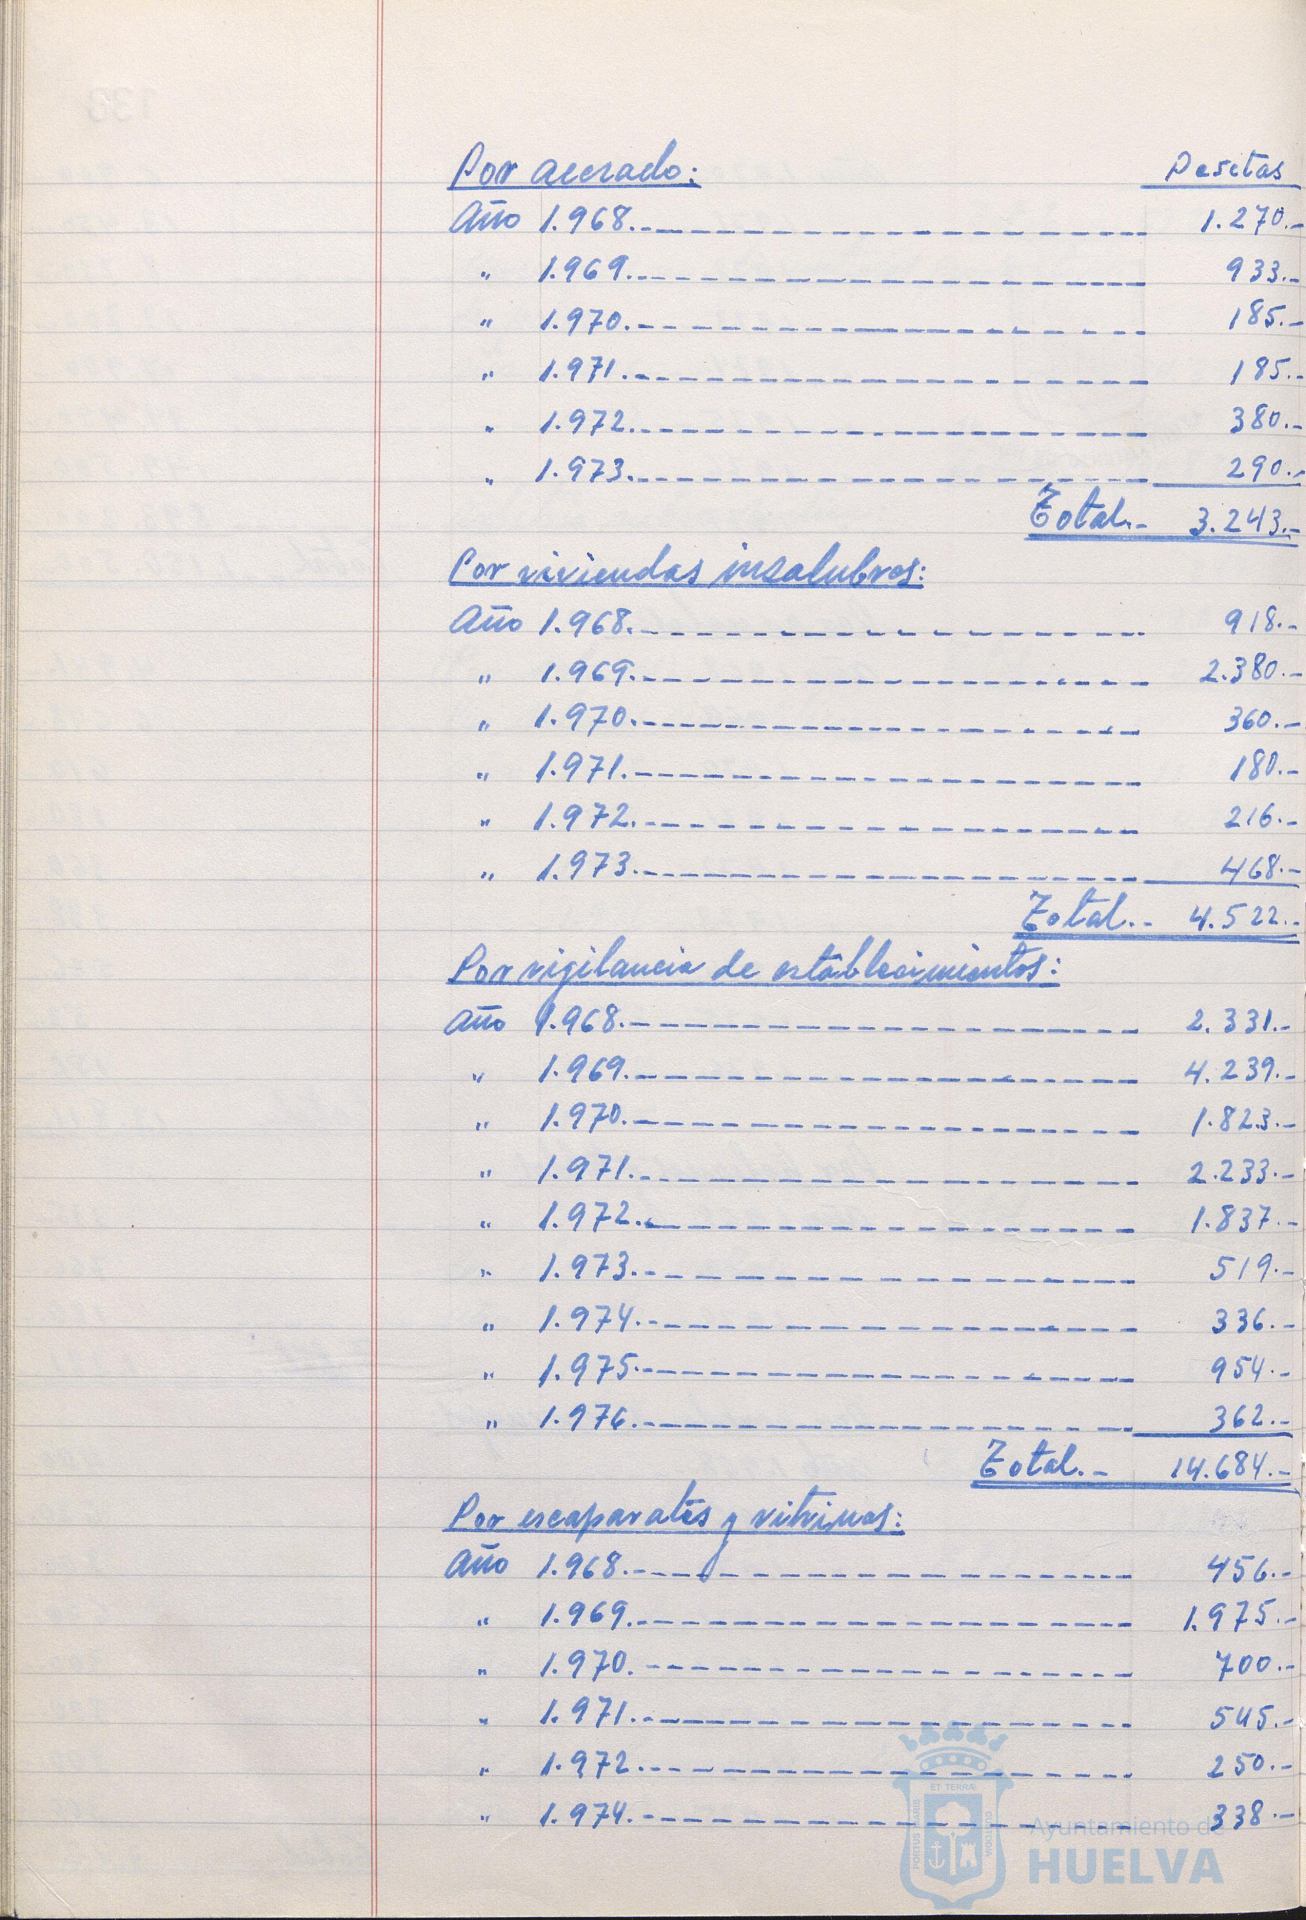 Por acerado: Pesetas
Año 1.968.- 1.270.-
" 1.969.- 933.-
" 1.970.- 185.-
" 1.971.- 185.-
" 1.972.- 380.-
" 1.973.- 290.-
Total.- 3.243.-
Por viviendas insalubres:
Año 1.968.- 918.-
" 1.969.- 2.380.-
" 1.970.- 360.-
" 1.971.- 180.-
" 1.972.- 216.-
" 1.973.- 468.-
Total.- 4.522.-
Por vigilancia de establecimientos:
Año 1.968.- 2.331.-
" 1.969.- 4.239.-
" 1.970.- 1.823.-
" 1.971.- 2.233.-
" 1.972.- 1.837.-
" 1.973.- 519.-
" 1.974.- 336.-
" 1.975.- 954.-
" 1.976.- 362.-
Total.- 14.684.-
Por escaparates y vitrinas:
Año 1.968.- 456.-
" 1.969.- 1.975.-
" 1.970.- 700.-
" 1.971.- 545.-
" 1.972.- 250.-
" 1.974.- 338.-
ET TERRÆ
PORTUS MARIS
CUSTODIA
Ayuntamiento de
HUELVA